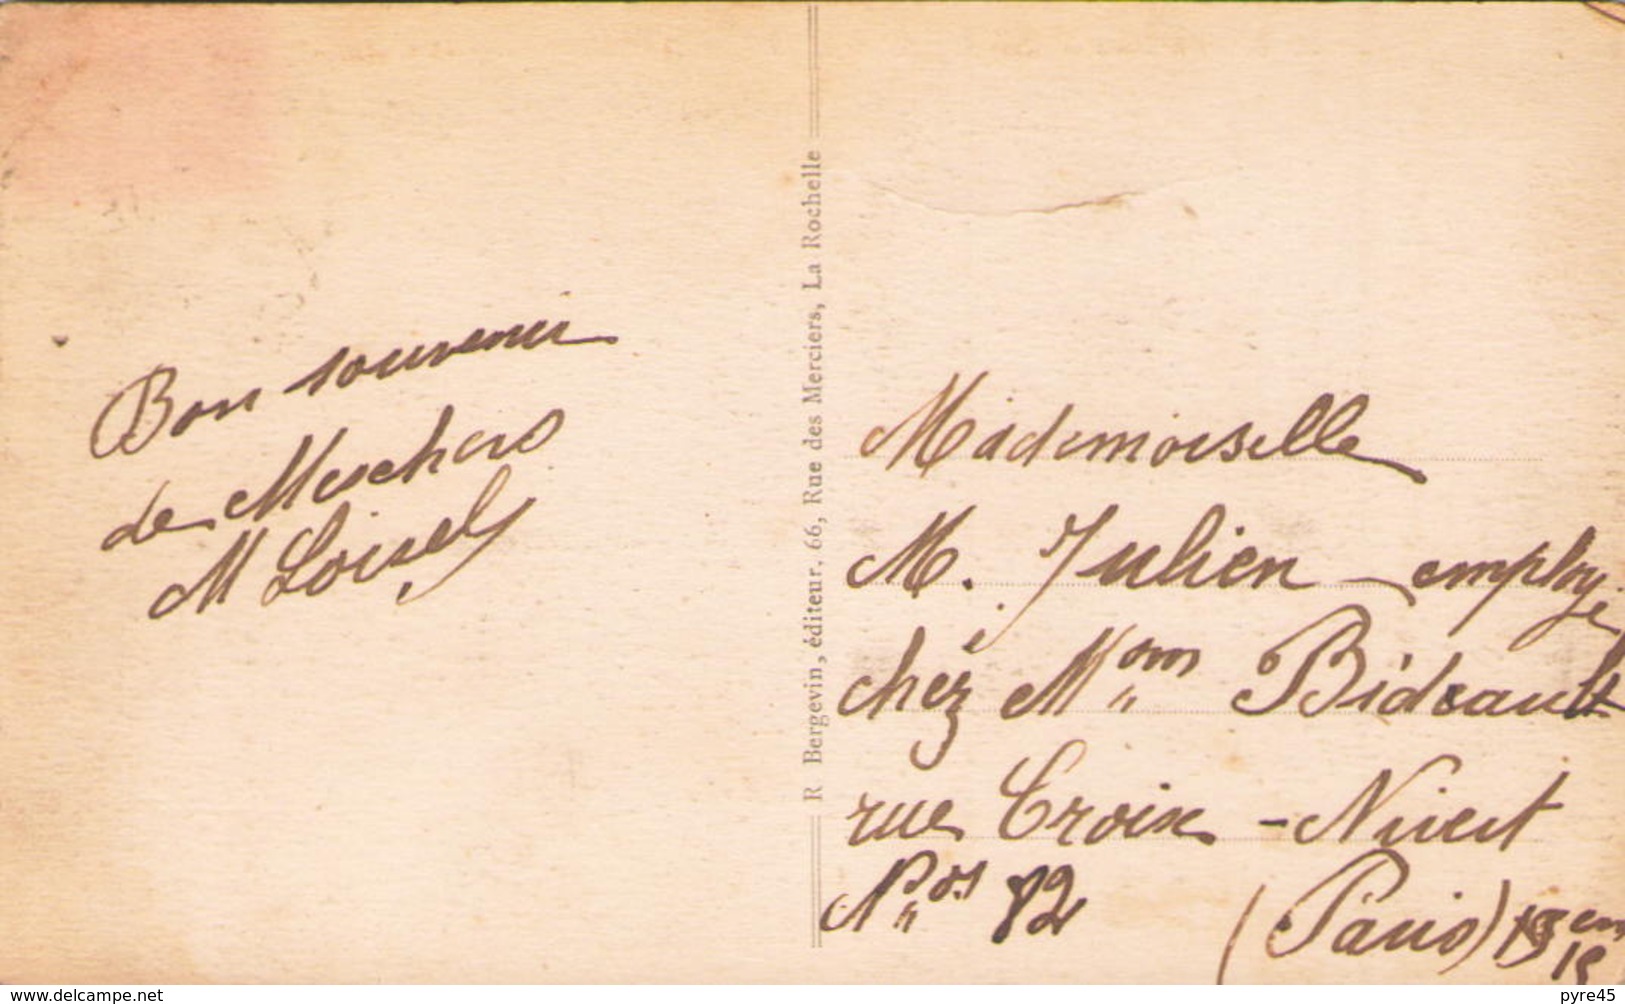 Bon souvenir
de Meschers
M Loisel
R Bergevin, éditeur. 66, Rue des Merciers, La Rochelle
Mademoiselle
M. Julien employée
chez Mson Bideault
rue Croix - Nivert
Nos 82
(Paris) 15em
15
www.delcampe.net
pyre45